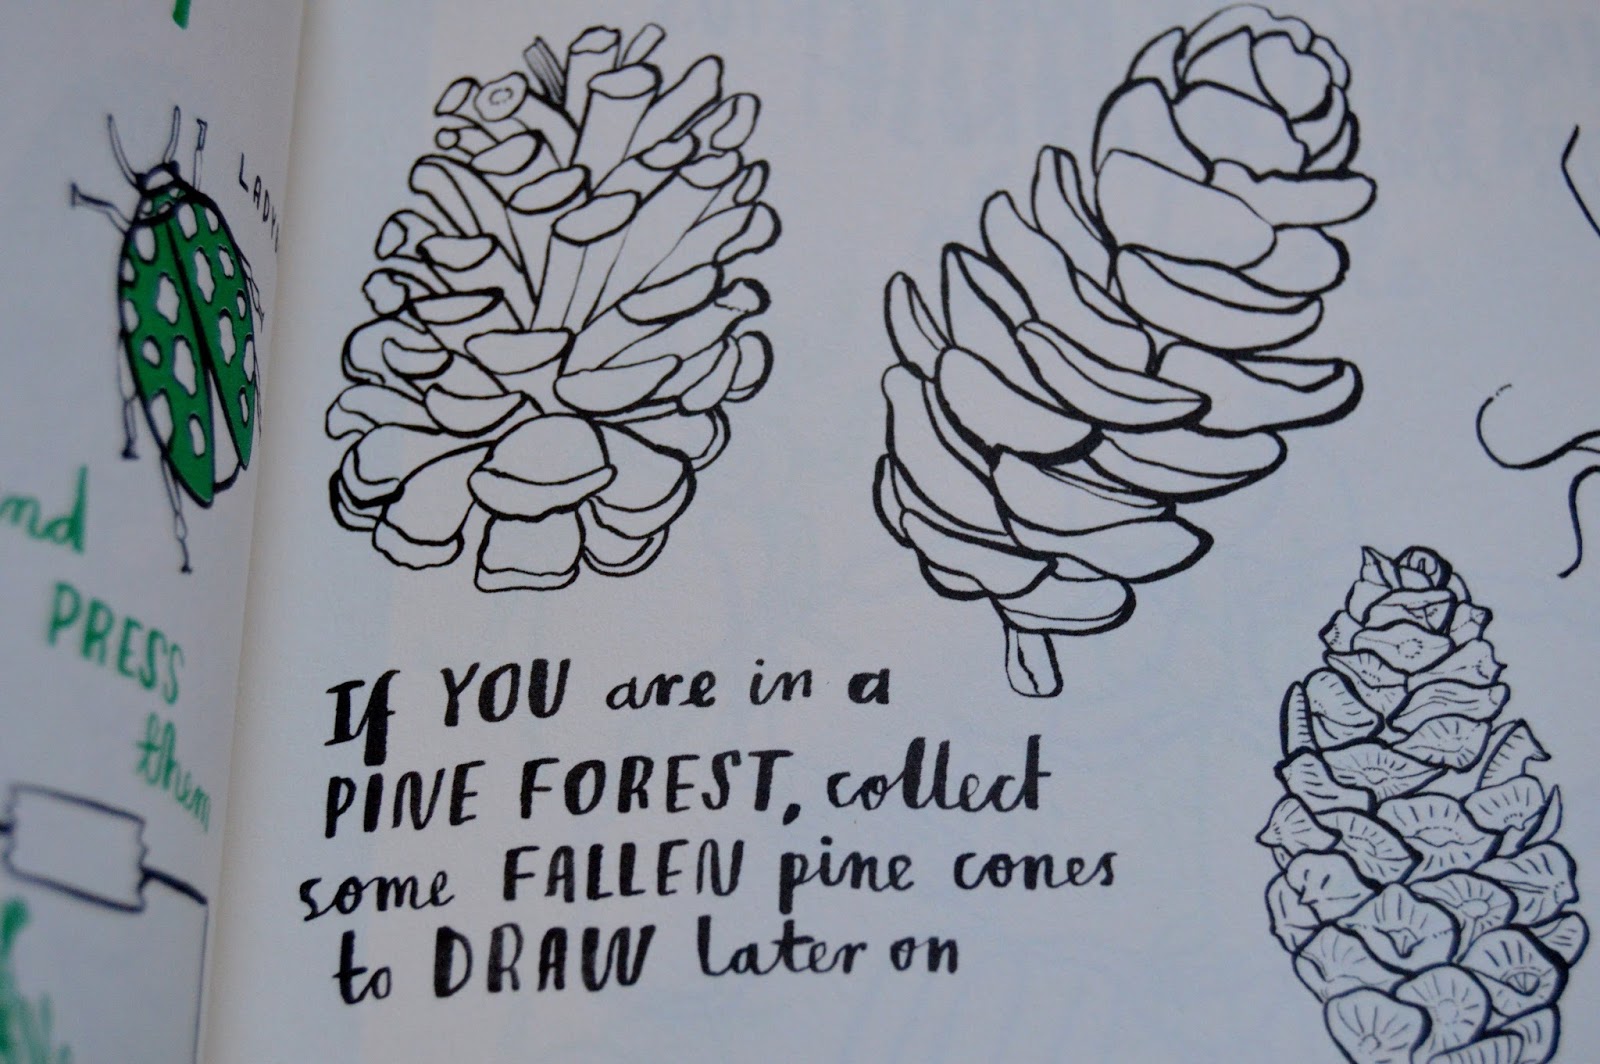 LADY
nd
PRESS
them
If YOU are in a
PINE FOREST, collect
some FALLEN pine cones
to DRAW later on